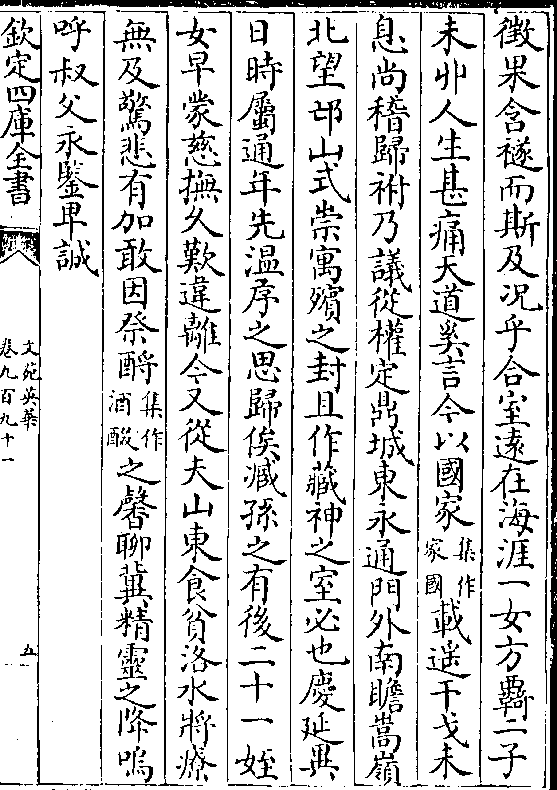 徴果含襚而斯及况乎合室逺在海涯一女方覊二子
未丱人生甚痛天道奚言今以國家集作家國載遥干戈未
息尚稽歸祔乃議從權定鼎城東永通門外南瞻嵩嶺
北望邙山式崇寓殯之封且作藏神之室必也慶延異
日時屬通年先温序之思歸俟臧孫之有後二十一姪
女早蒙慈撫久歎違離今又從夫山東食貧洛水將療
無及驚悲有加敢因祭酹集作酒酘之馨聊冀精靈之降嗚
呼叔父永鑒卑誠
欽定四庫全書
文苑英華
卷九百九十一
五